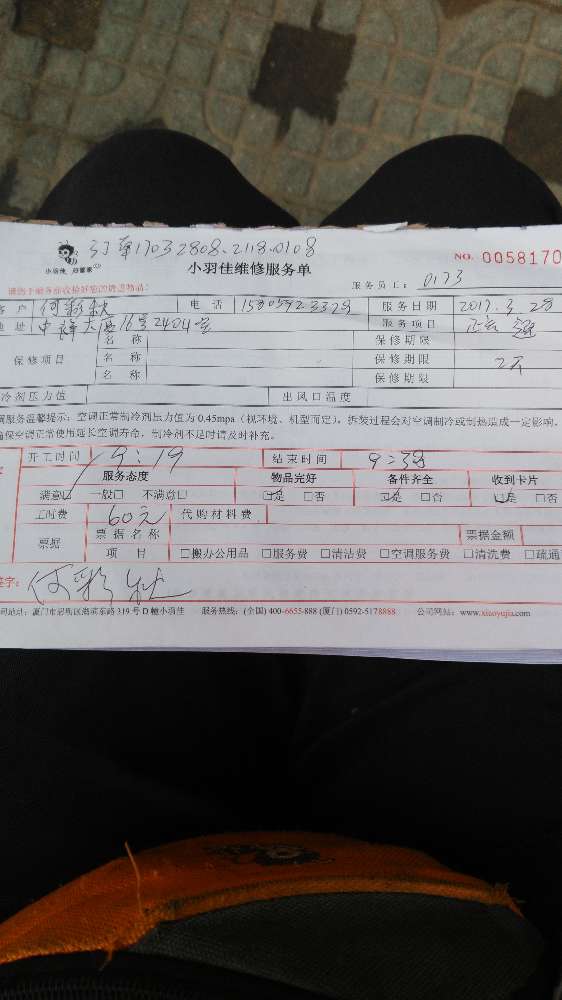 订单17032808.2118.0108
小羽佳维修服务单
NO. 0058170
服务员工: 0173
户 何彩秋 电话 服务日期 2017.3.28
地址 16号2404室 服务项目
名称 保修期限
保修项目 名称 保修期限
名称 保修期限
冷剂压力值 出风口温度
调服务温馨提示:空调正常制冷剂压力值为0.45mpa(视环境、机型而定),拆装过程会对空调制冷或制热造成一定影响,
确保空调正常使用延长空调寿命,制冷剂不足时请及时补充。
开工时间 9:19 结束时间
服务态度 物品完好 备件齐全 收到卡片
满意□ 一般□ 不满意□ □是 □否 □是 □否 □是 □否
工时费 60元 代购材料费
票据 票据名称 票据金额
项目 □搬办公用品 □服务费 □清洁费 □空调服务费 □清洗费 □疏通
签字: 何彩秋
司地址:厦门市思明区湖滨东路319号D幢小羽佳 服务热线:(全国) 400-6655-888 (厦门) 0592-5178888 公司网站:www.xiaoyujia.com